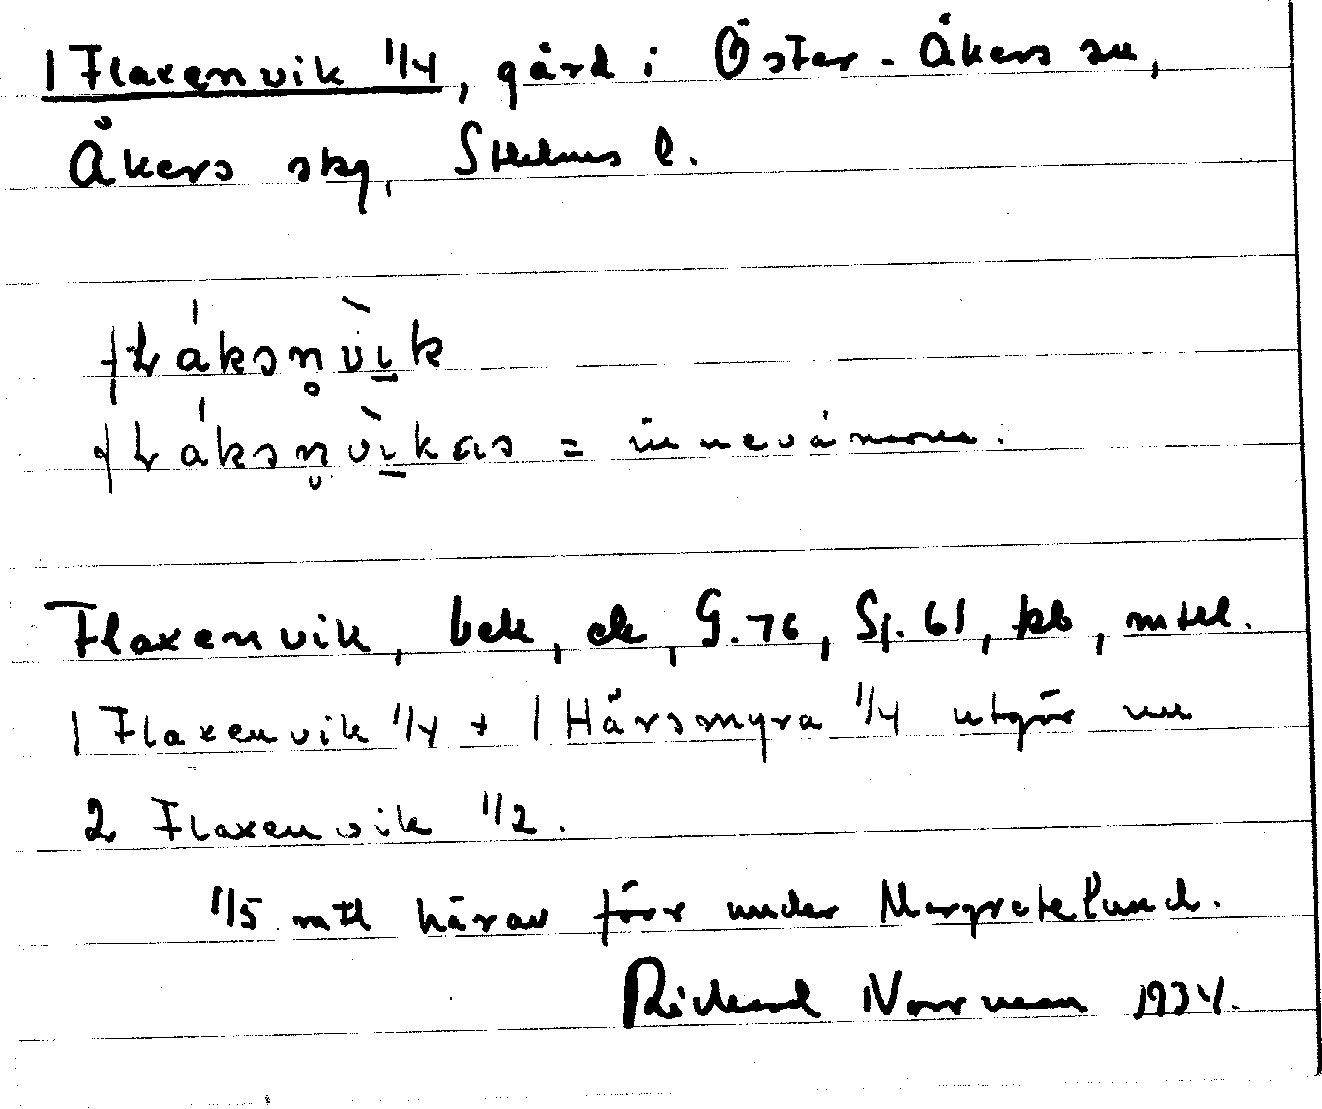 1 Flaxenvik 1/4, gård i Öster-Åkers sn,
Åkers skg, Sthlms l.
fláksn̥vìk
fláksn̥vìkas = innevånarna.
Flaxenvik, bek, ek, G.76, Sj. 61, kb, mtkl.
1 Flaxenvik 1/4 + 1 Hårsmyra 1/4 utgör nu
2 Flaxenvik 1/2.
1/5 mtl härav förr under Margretelund.
Rickard Norrman 1934.